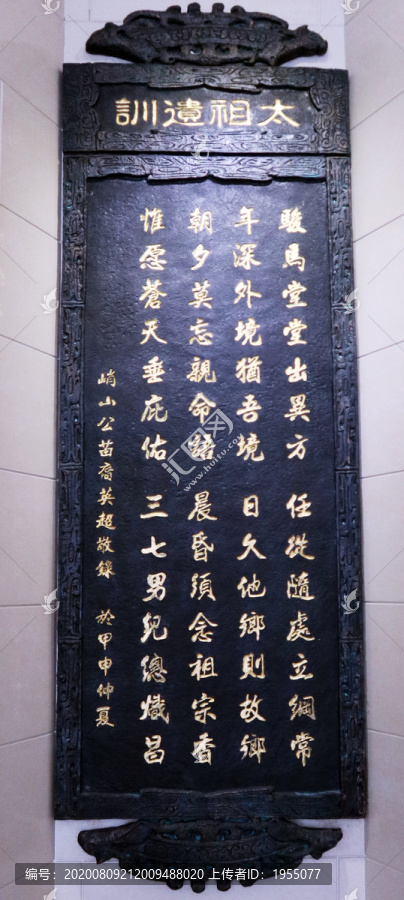 太祖遺訓
駿馬堂堂出異方 任從隨處立綱常
年深外境猶吾境 日久他鄉則故鄉
朝夕莫忘親命語 晨昏須念祖宗香
惟愿蒼天垂庇佑 三七男兒總熾昌
峭山公苗裔英超敬錄 於甲申仲夏
汇图网
www.huitu.com
编号：20200809212009488020 上传者ID：1955077